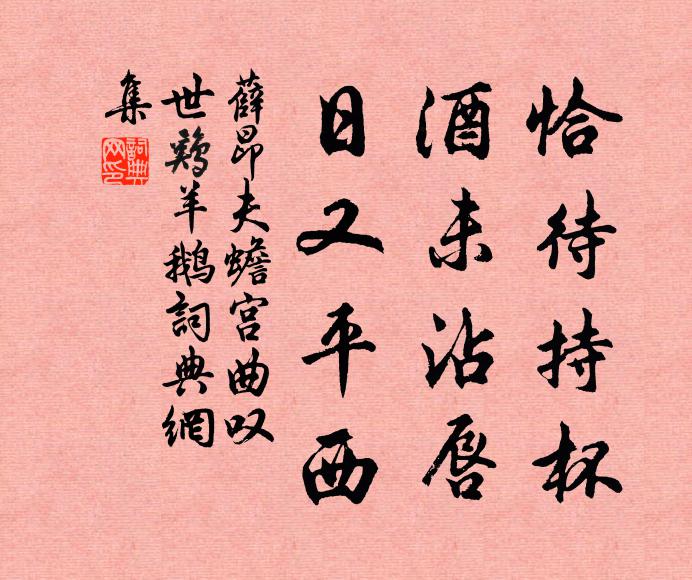 恰待持杯
酒未沾唇
日又平西
薛昂夫蟾宫曲叹
世鸡羊鹅詞典網
集
詞典
网印